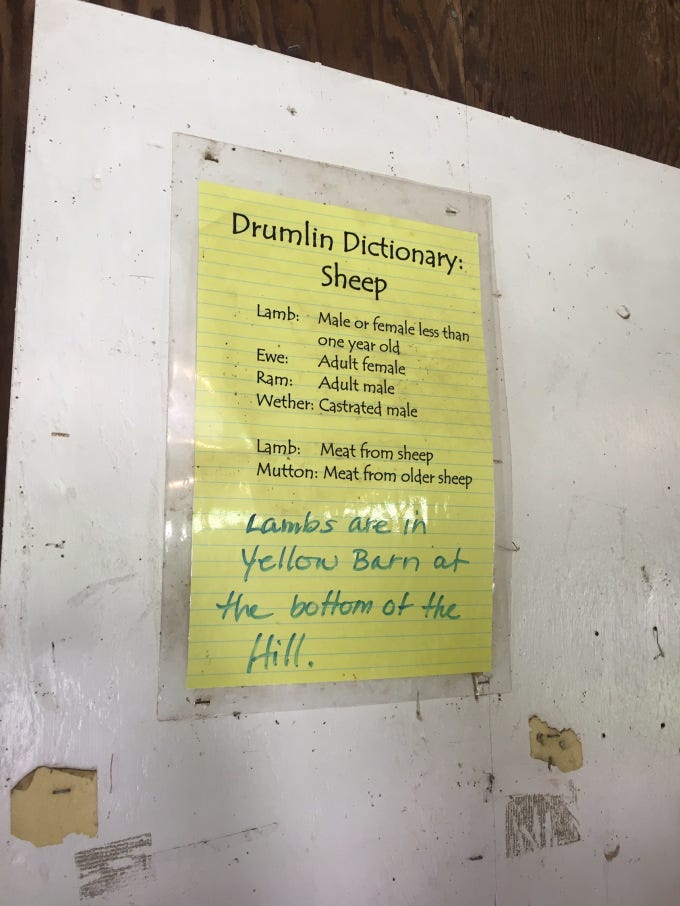 Drumlin Dictionary:
Sheep
Lamb: Male or female less than
one year old
Ewe: Adult female
Ram: Adult male
Wether: Castrated male
Lamb: Meat from sheep
Mutton: Meat from older sheep
Lambs are in
Yellow Barn at
the bottom of the
Hill.